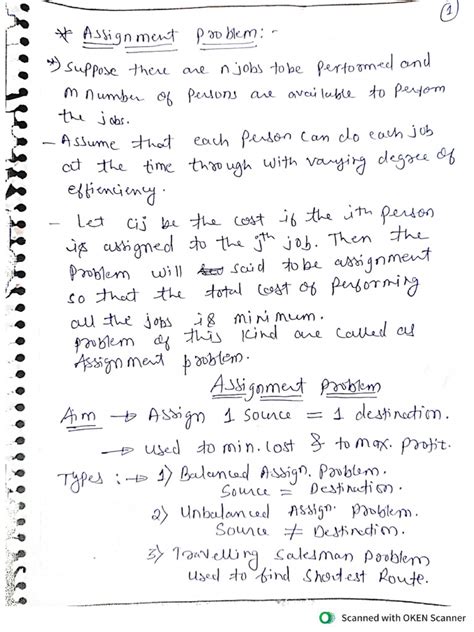 1
* Assignment Problem:-
*) Suppose there are n jobs to be performed and
m number of persons are available to perform
the jobs.
- Assume that each person can do each job
at the time through with varying degree of
effienciency.
- Let cij be the cost if the ith person
is assigned to the jth job. Then the
problem will said to be assignment
so that the total cost of performing
all the jobs is minimum.
problem of this kind are called as
Assignment problem.
Assignment problem
Aim → Assign 1 source = 1 destination.
→ used to min. cost & to max. profit.
Types : → 1) Balanced Assign. Problem.
Source = Destination.
2) Unbalanced Assign. Problem.
Source ≠ Destination.
3) Travelling Salesman Problem
used to find Shortest Route.
Scanned with OKEN Scanner